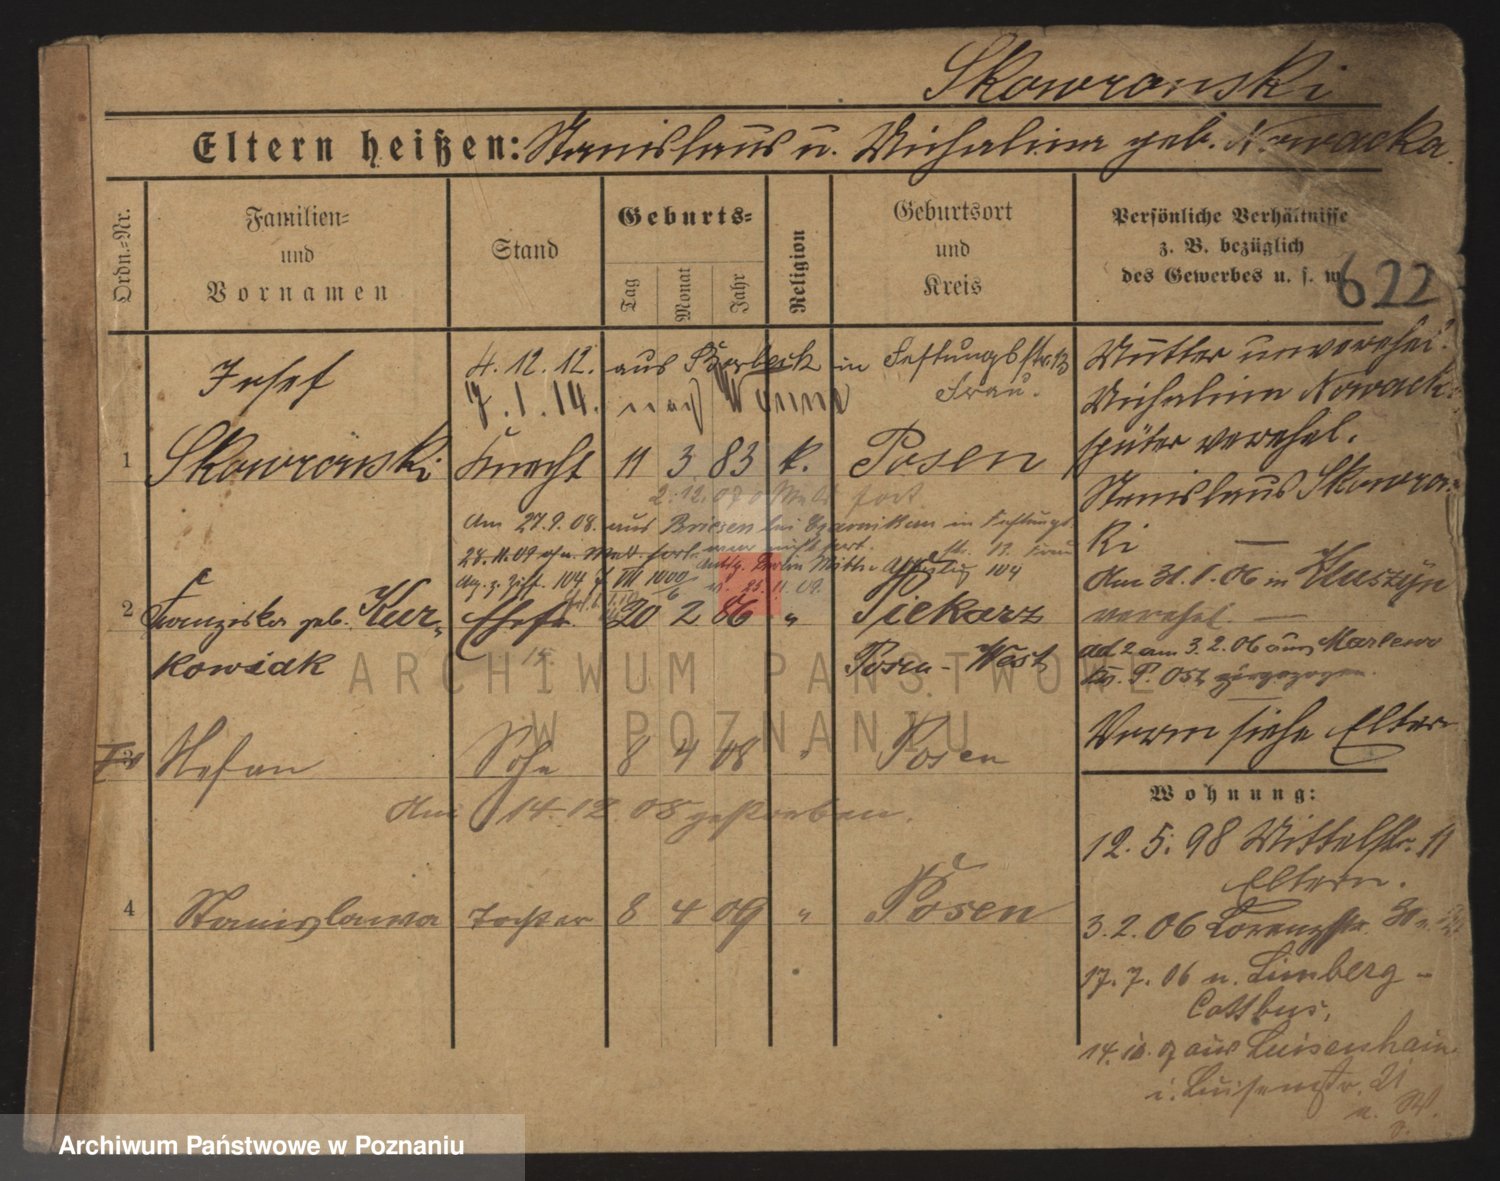 Skowronski
Eltern heißen: Stanislaus u. Michalina geb. Nowacka.
Ordn.-Nr.
Familien-
und
Vornamen
Stand
Geburts-
Tag
Monat
Jahr
Religion
Geburtsort
und
Kreis
Persönliche Verhältnisse
z. B. bezüglich
des Gewerbes u. s. w.
622
Josef
4. 12. 12. aus Borbeck in Festungsstr. 13
Frau.
7. 1. 14. nach
1 Skowronski Knecht 11 3 83 k. Posen
2. 12. 08 Welt fort
Am 27. 9. 08. aus Briesen bei Czarnikau in Festungs-
str. 13. Frau
28. 11. 09 Welt fort. nicht fort.
104 VIII 1000 Berlin Mitte 104
v. 25. 11. 09.
2 Franziska geb. Kur-
kowiak
Ehefr. 20 2 86 " Piekarz
Posen-West
3 Stefan Sohn 8 4 08 " Posen
Am 14. 12. 08 gestorben.
4 Stanislawa Tochter 8 4 09 " Posen
Mutter unverehel.
Michalina Nowack-
später verehel.
Stanislaus Skowrons-
ki —
Am 31. 1. 06 in
verehel. —
ad 2 am 3. 2. 06 aus Marlewo
Kr. P. Ost zugezogen.
Verm siehe Eltern
Wohnung:
12. 5. 98 Mittelstr. 11
Eltern.
3. 2. 06 Lorenzstr.
17. 7. 06 n. Limberg -
Cottbus.
14. 10. 07 aus Luisenhain
i. Luisenstr. 21
ARCHIWUM PAŃSTWOWE
W POZNANIU
Archiwum Państwowe w Poznaniu